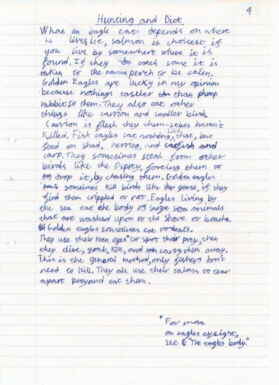 4
Hunting and Diet
What an eagle eats depends on where
it lives. salmon is
you live by somewhere where it is
found. If they do catch some it is
taken to the perch to be eaten.
Golden Eagles are lucky in my opinion
because nothing's tastier than plump
rabbit to them. They also eat other
things like carrion and smaller birds.
Carrion is flesh they them-selves haven't
killed. Fish eagles eat nothing that, but
feed on shad, and catfish and
carp. They sometimes steal from other
birds like the Osprey, forcing them
to drop it, by chasing them. Golden eagles
sometimes kill birds like the goose, if they
find them crippled or not. Eagles living by
the sea eat the bodies of large sea animals
that are washed up on to the shore or beach.
Golden eagles sometimes eat
They use their keen eyes to spot their prey, then
they dive, grab, kill, and carry them away.
This is the general method, only fishers don't
need to kill. They all use their talons to tear
apart prey and eat them.
"For more
on eagles eyesight,
see "The eagles body"